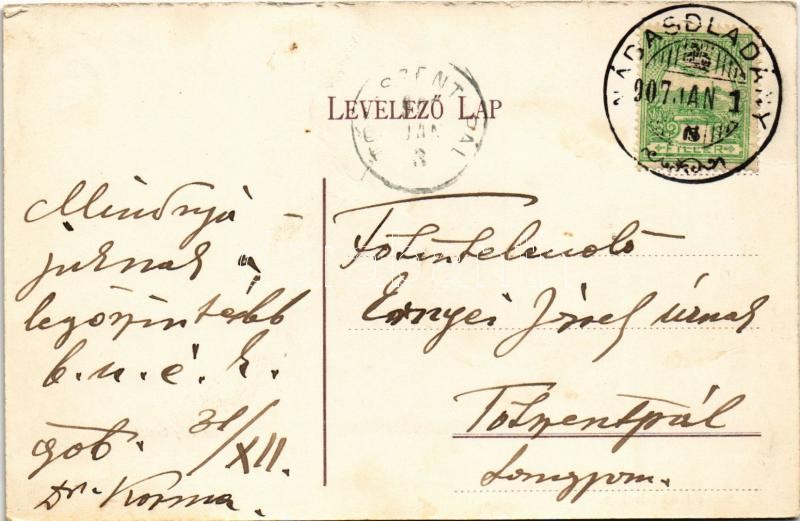 LEVELEZŐ LAP
NÁDASDLADÁNY
907 JAN 1
FILLER
SZENT PÁL
JAN
3
Mindnyá-
juknak
legőszintébb
b. u. é. k.
906. 31/XII.
Dr. Korma
Főtintelendő
Ernyei József úrnak
Tótszentpál
Somogy m.